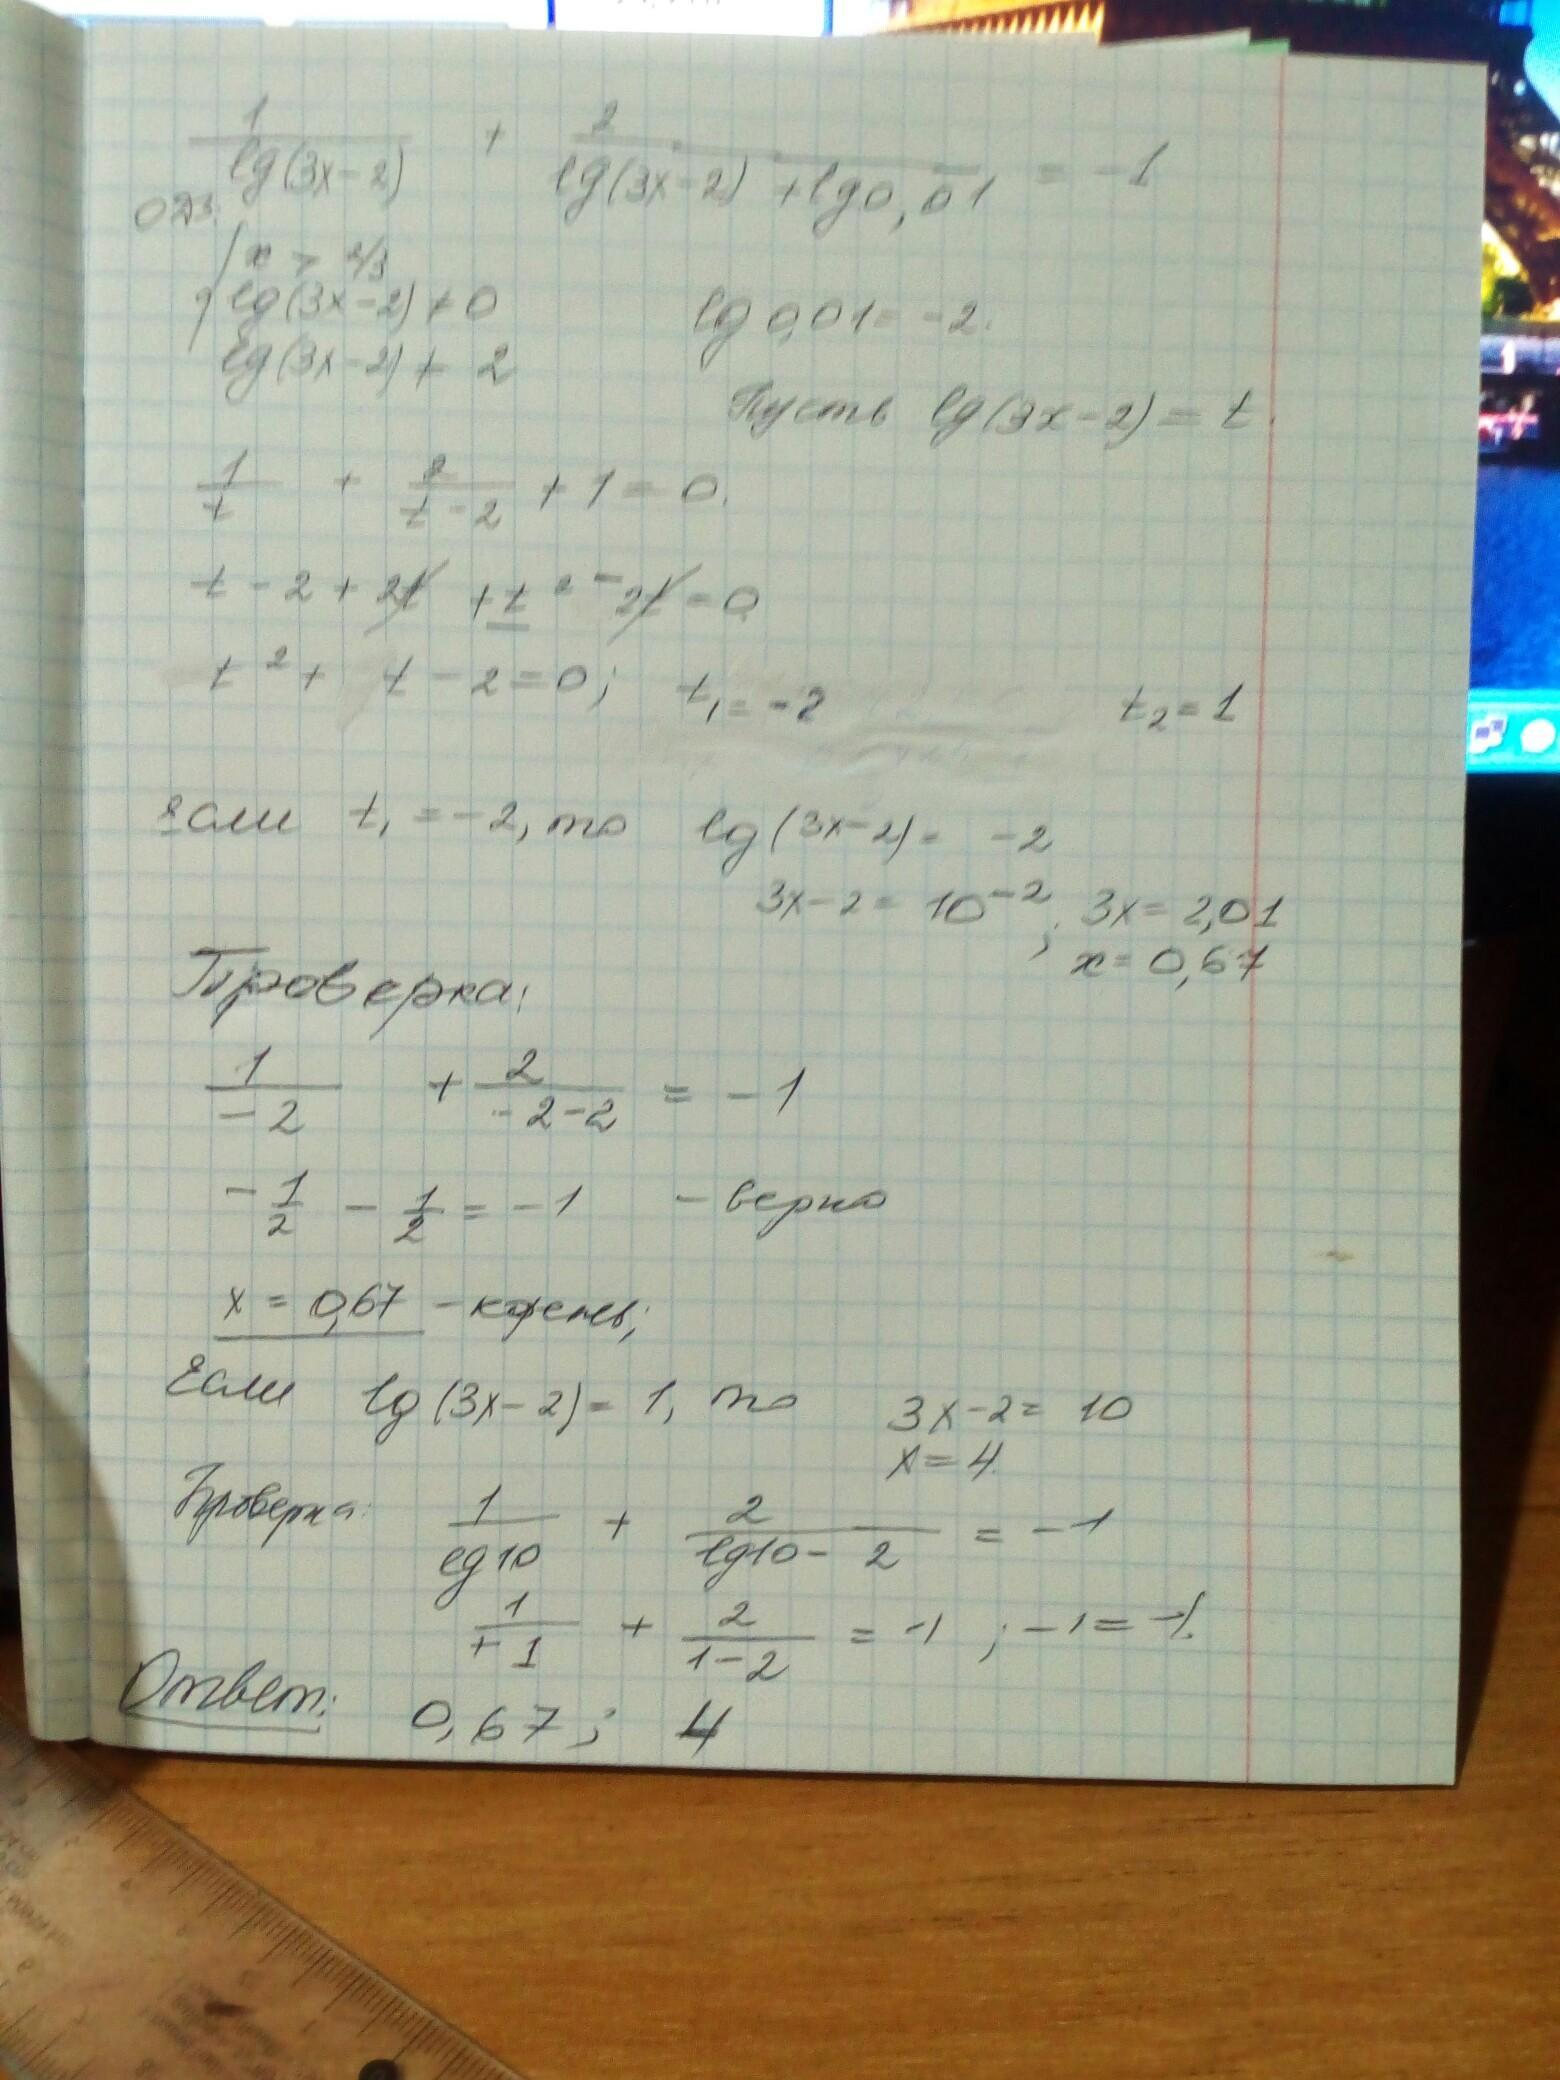 1/lg(3x-2) + 2/(lg(3x-2) + lg0,01) = -1
ОДЗ:
x > 2/3
lg(3x-2) ≠ 0
lg0,01 = -2.
lg(3x-2) ≠ 2
Пусть lg(3x-2) = t.
1/t + 2/(t-2) + 1 = 0.
t - 2 + 2t + t² - 2t = 0
t² + t - 2 = 0; t₁ = -2 t₂ = 1
если t₁ = -2, то lg(3x-2) = -2
3x-2 = 10⁻²; 3x = 2,01
x = 0,67
Проверка:
1/-2 + 2/(-2-2) = -1
-1/2 - 1/2 = -1 - верно
x = 0,67 - корень;
Если lg(3x-2) = 1, то 3x-2 = 10
x = 4.
Проверка: 1/lg10 + 2/(lg10 - 2) = -1
1/+1 + 2/(1-2) = -1 ; -1 = -1.
Ответ: 0,67; 4